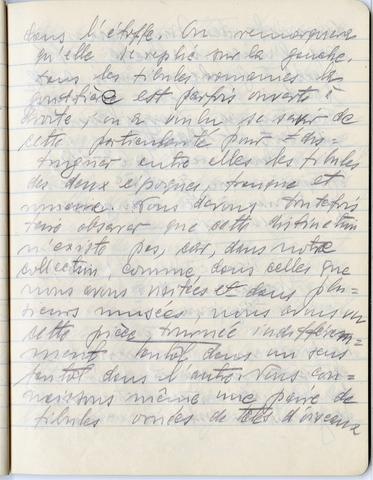 dans l'étoffe. On remarquera
qu'elle se replie sur la gauche.
Dans les fibules romaines la
gouttière est parfois ouverte à
droite; on a voulu se servir de
cette particularité pour dis=
tinguer entre elles les fibules
des deux époques, franque et
romaine. Nous devons toutefois
faire observer que cette distinction
n'existe pas, car, dans notre
collection, comme dans celles que
nous avons visitées et dans plu=
sieurs musées, nous avons vu
cette pièce tournée indifférem=
ment tantôt dans un sens
tantôt dans l'autre. Nous con=
naissons même une paire de
fibules ornées de têtes d'oiseaux